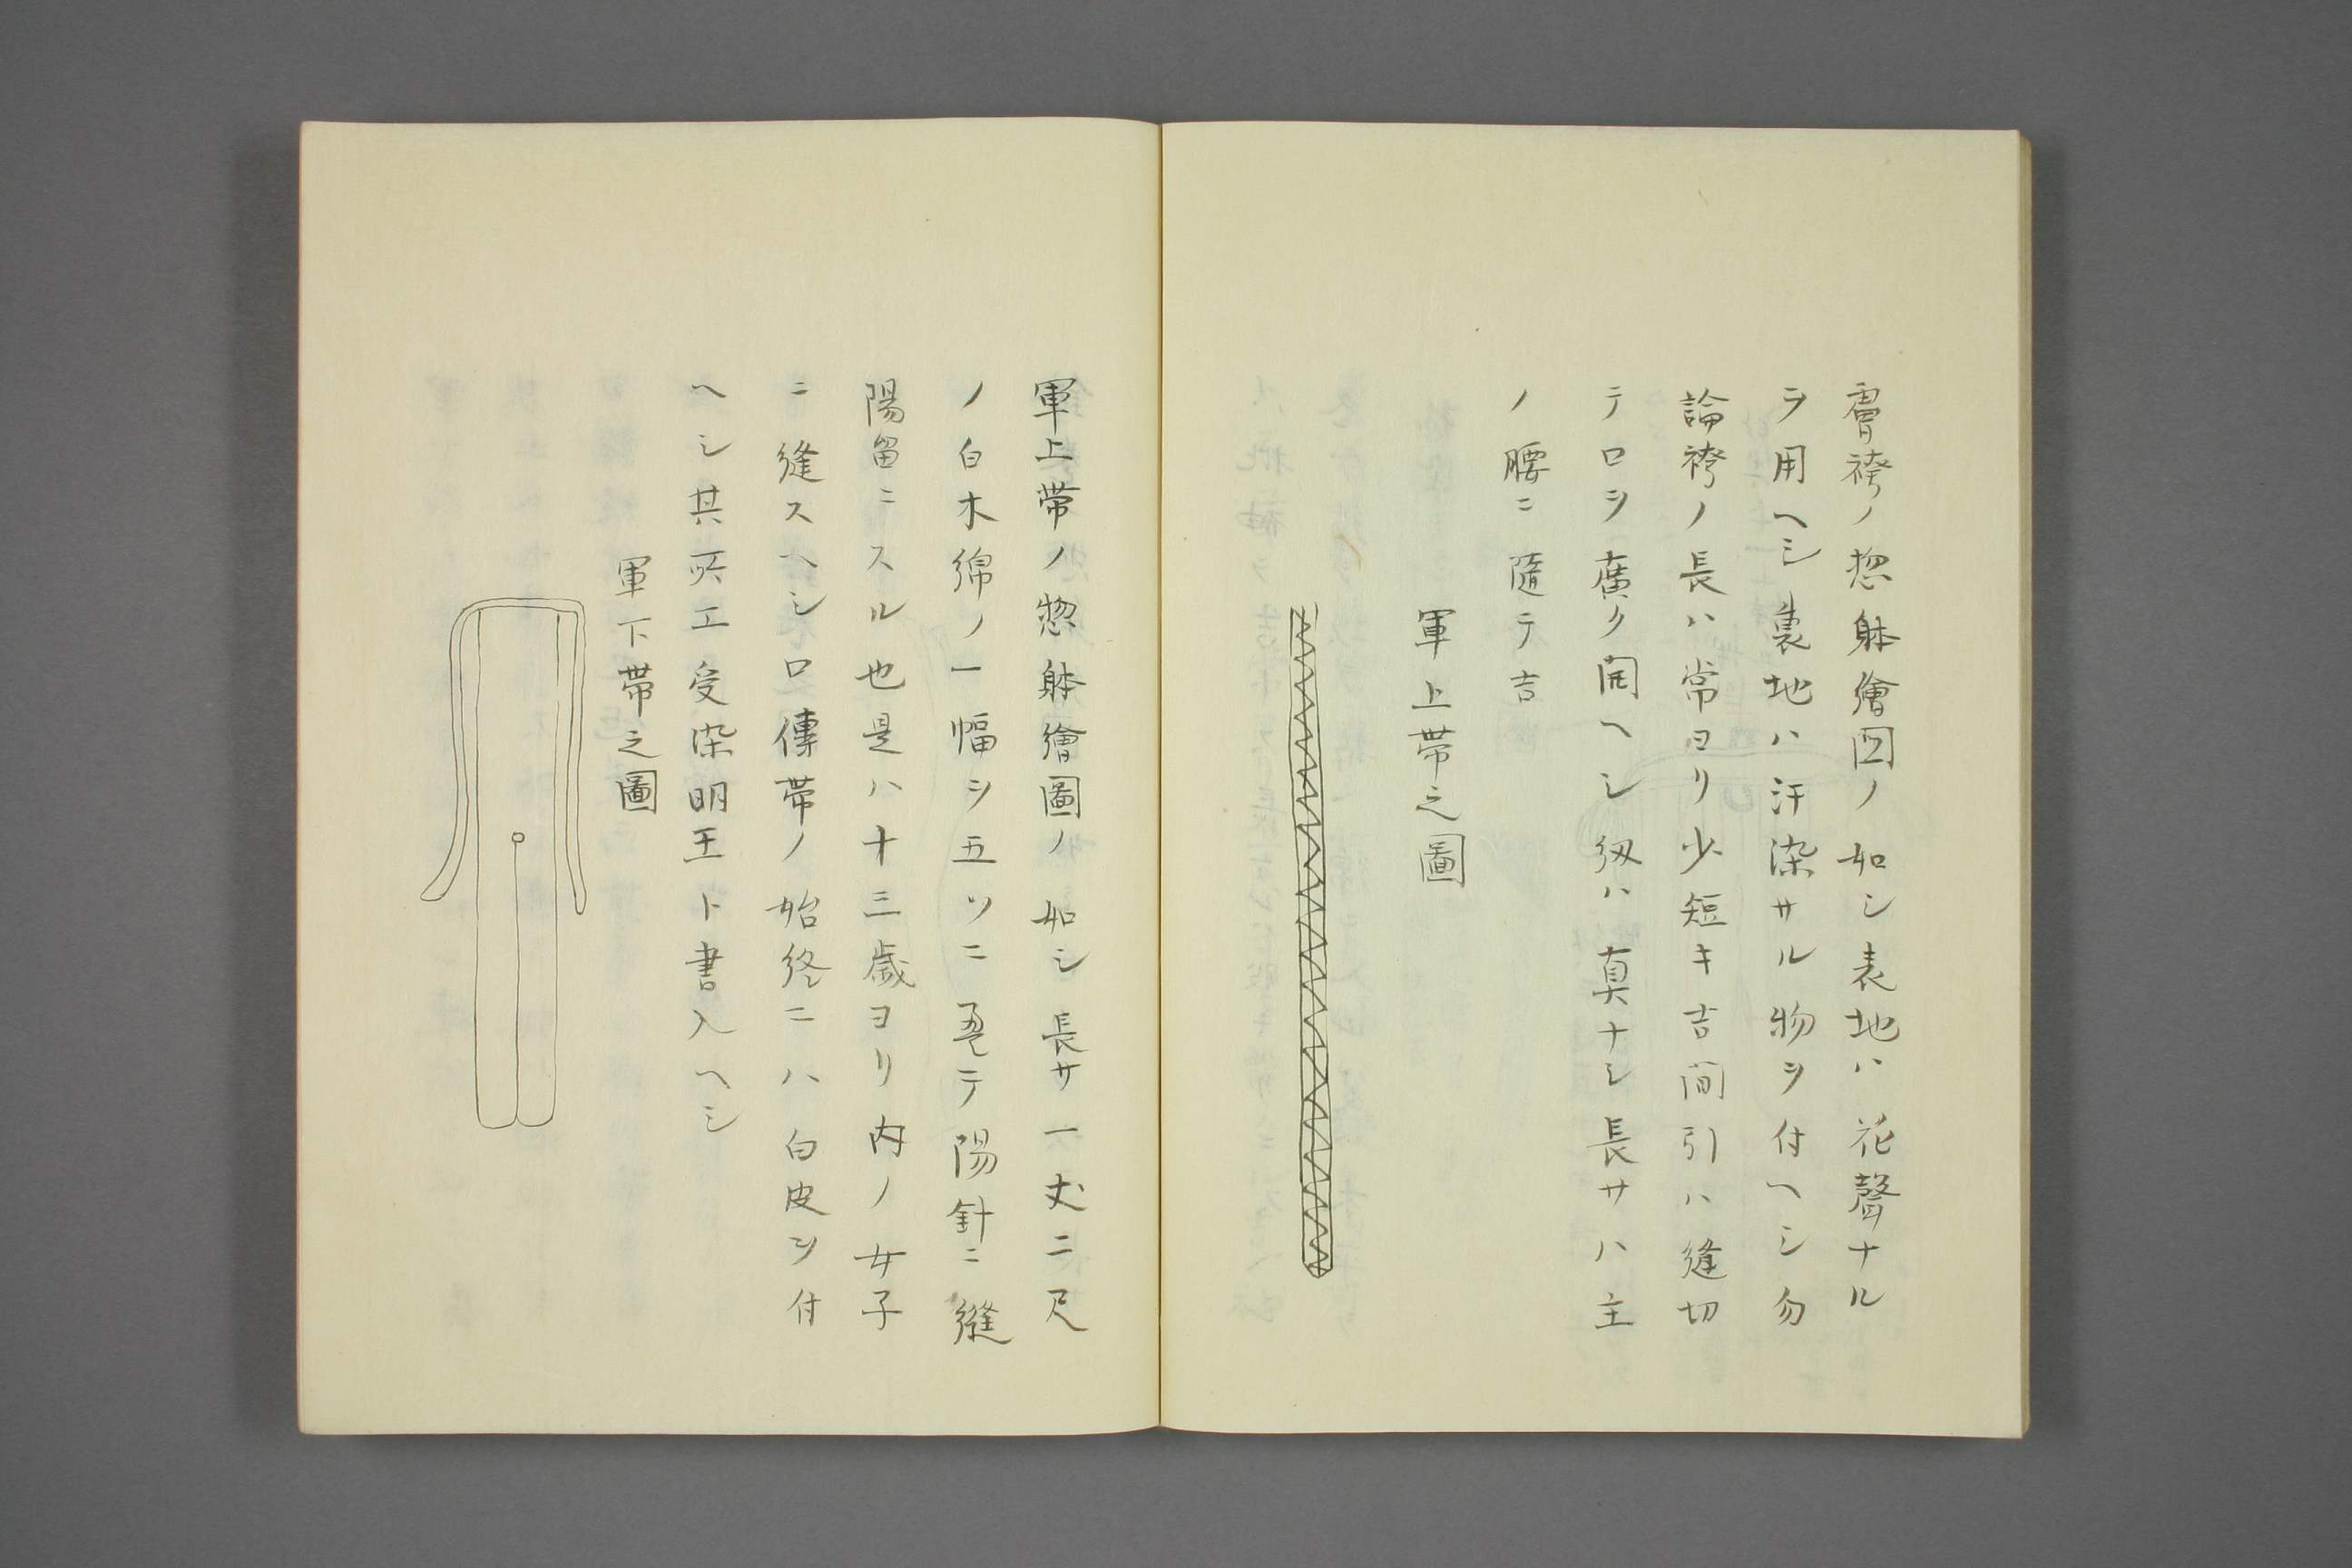 膚袴ノ惣躰繪図ノ如シ表地ハ花聲ナル
ヲ用ヘシ裏地ハ汗染サル物ヲ付ヘシ勿
論袴ノ長ハ常ヨリ少短キ吉間引ハ縫切
テロヲ廣ク開ヘシ紐ハ真ナシ長サハ主
ノ腰ニ隨テ吉
軍上帯之圖
軍上帯ノ惣躰繪圖ノ如シ長サ一丈二尺
ノ白木綿ノ一幅ヲ五ツニ疊テ陽針ニ縫
陽留ニスル也是ハ十三歳ヨリ内ノ女子
ニ縫スヘシ口傳帯ノ始終ニハ白皮ヲ付
ヘシ其所エ受染明王ト書入ヘシ
軍下帯之圖